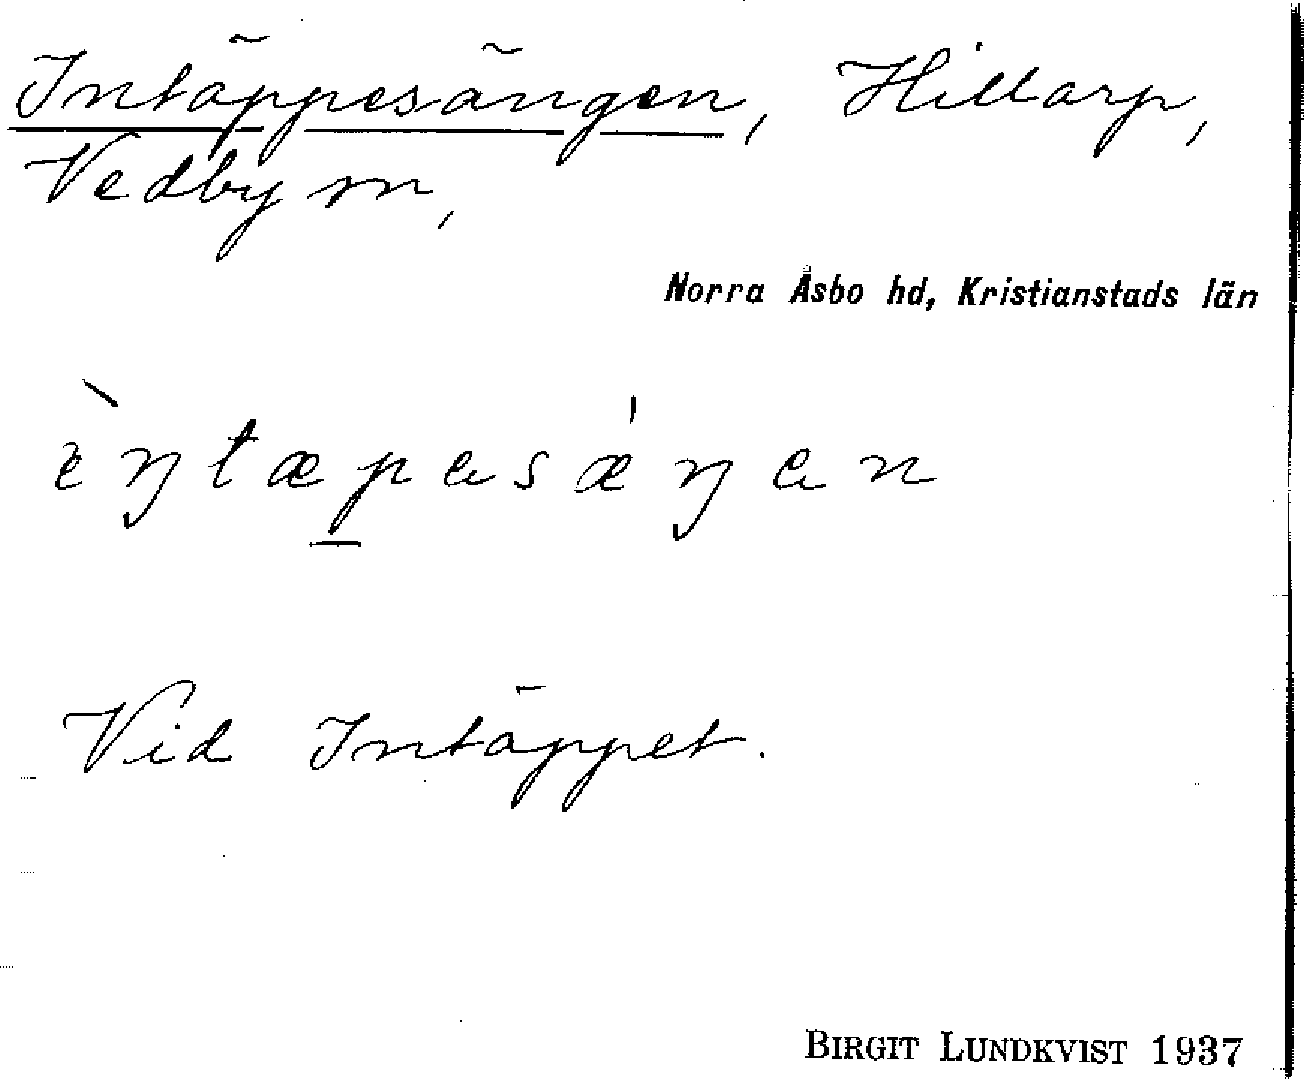 Intäppesängen, Hillarp,
Vedby sn,
Norra Åsbo hd, Kristianstads län
èŋtæpesæ̍ŋen
Vid Intäppet.
BIRGIT LUNDKVIST 1937